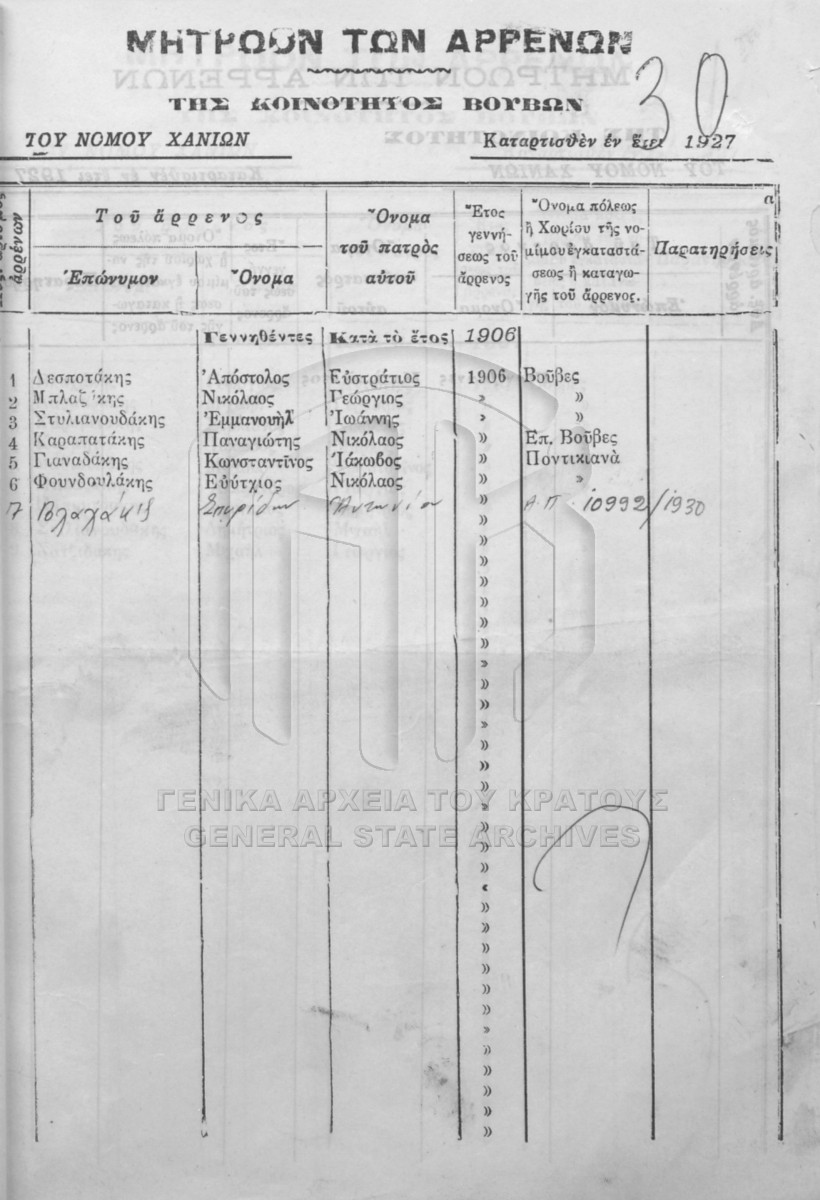 ΜΗΤΡΩΟΝ ΤΩΝ ΑΡΡΕΝΩΝ
ΤΗΣ ΚΟΙΝΟΤΗΤΟΣ ΒΟΥΒΩΝ
30
ΤΟΥ ΝΟΜΟΥ ΧΑΝΙΩΝ Καταρτισθὲν ἐν ἔτει 1927
ἀρρένων
Τοῦ ἄρρενος
Ἐπώνυμον Ὄνομα
Ὄνομα
τοῦ πατρὸς
αὐτοῦ
Ἔτος
γεννή-
σεως τοῦ
ἄρρενος
Ὄνομα πόλεως
ἢ Χωρίου τῆς νο-
μίμου ἐγκαταστά-
σεως ἢ καταγω-
γῆς τοῦ ἄρρενος.
Παρατηρήσεις
Γεννηθέντες Κατὰ τὸ ἔτος 1906
1 Δεσποτάκης Ἀπόστολος Εὐστράτιος 1906 Βοῦβες
2 Μπλαζάκης Νικόλαος Γεώργιος » »
3 Στυλιανουδάκης Ἐμμανουὴλ Ἰωάννης » »
4 Καραπατάκης Παναγιώτης Νικόλαος » Ἐπ. Βοῦβες
5 Γιαναδάκης Κωνσταντῖνος Ἰάκωβος » Ποντικιανὰ
6 Φουνδουλάκης Εὐύτχιος Νικόλαος » »
7 Βλαχάκις Σπυρίδων Ἀντωνίου » Α.Π. 10992/1930
ΓΕΝΙΚΑ ΑΡΧΕΙΑ ΤΟΥ ΚΡΑΤΟΥΣ
GENERAL STATE ARCHIVES